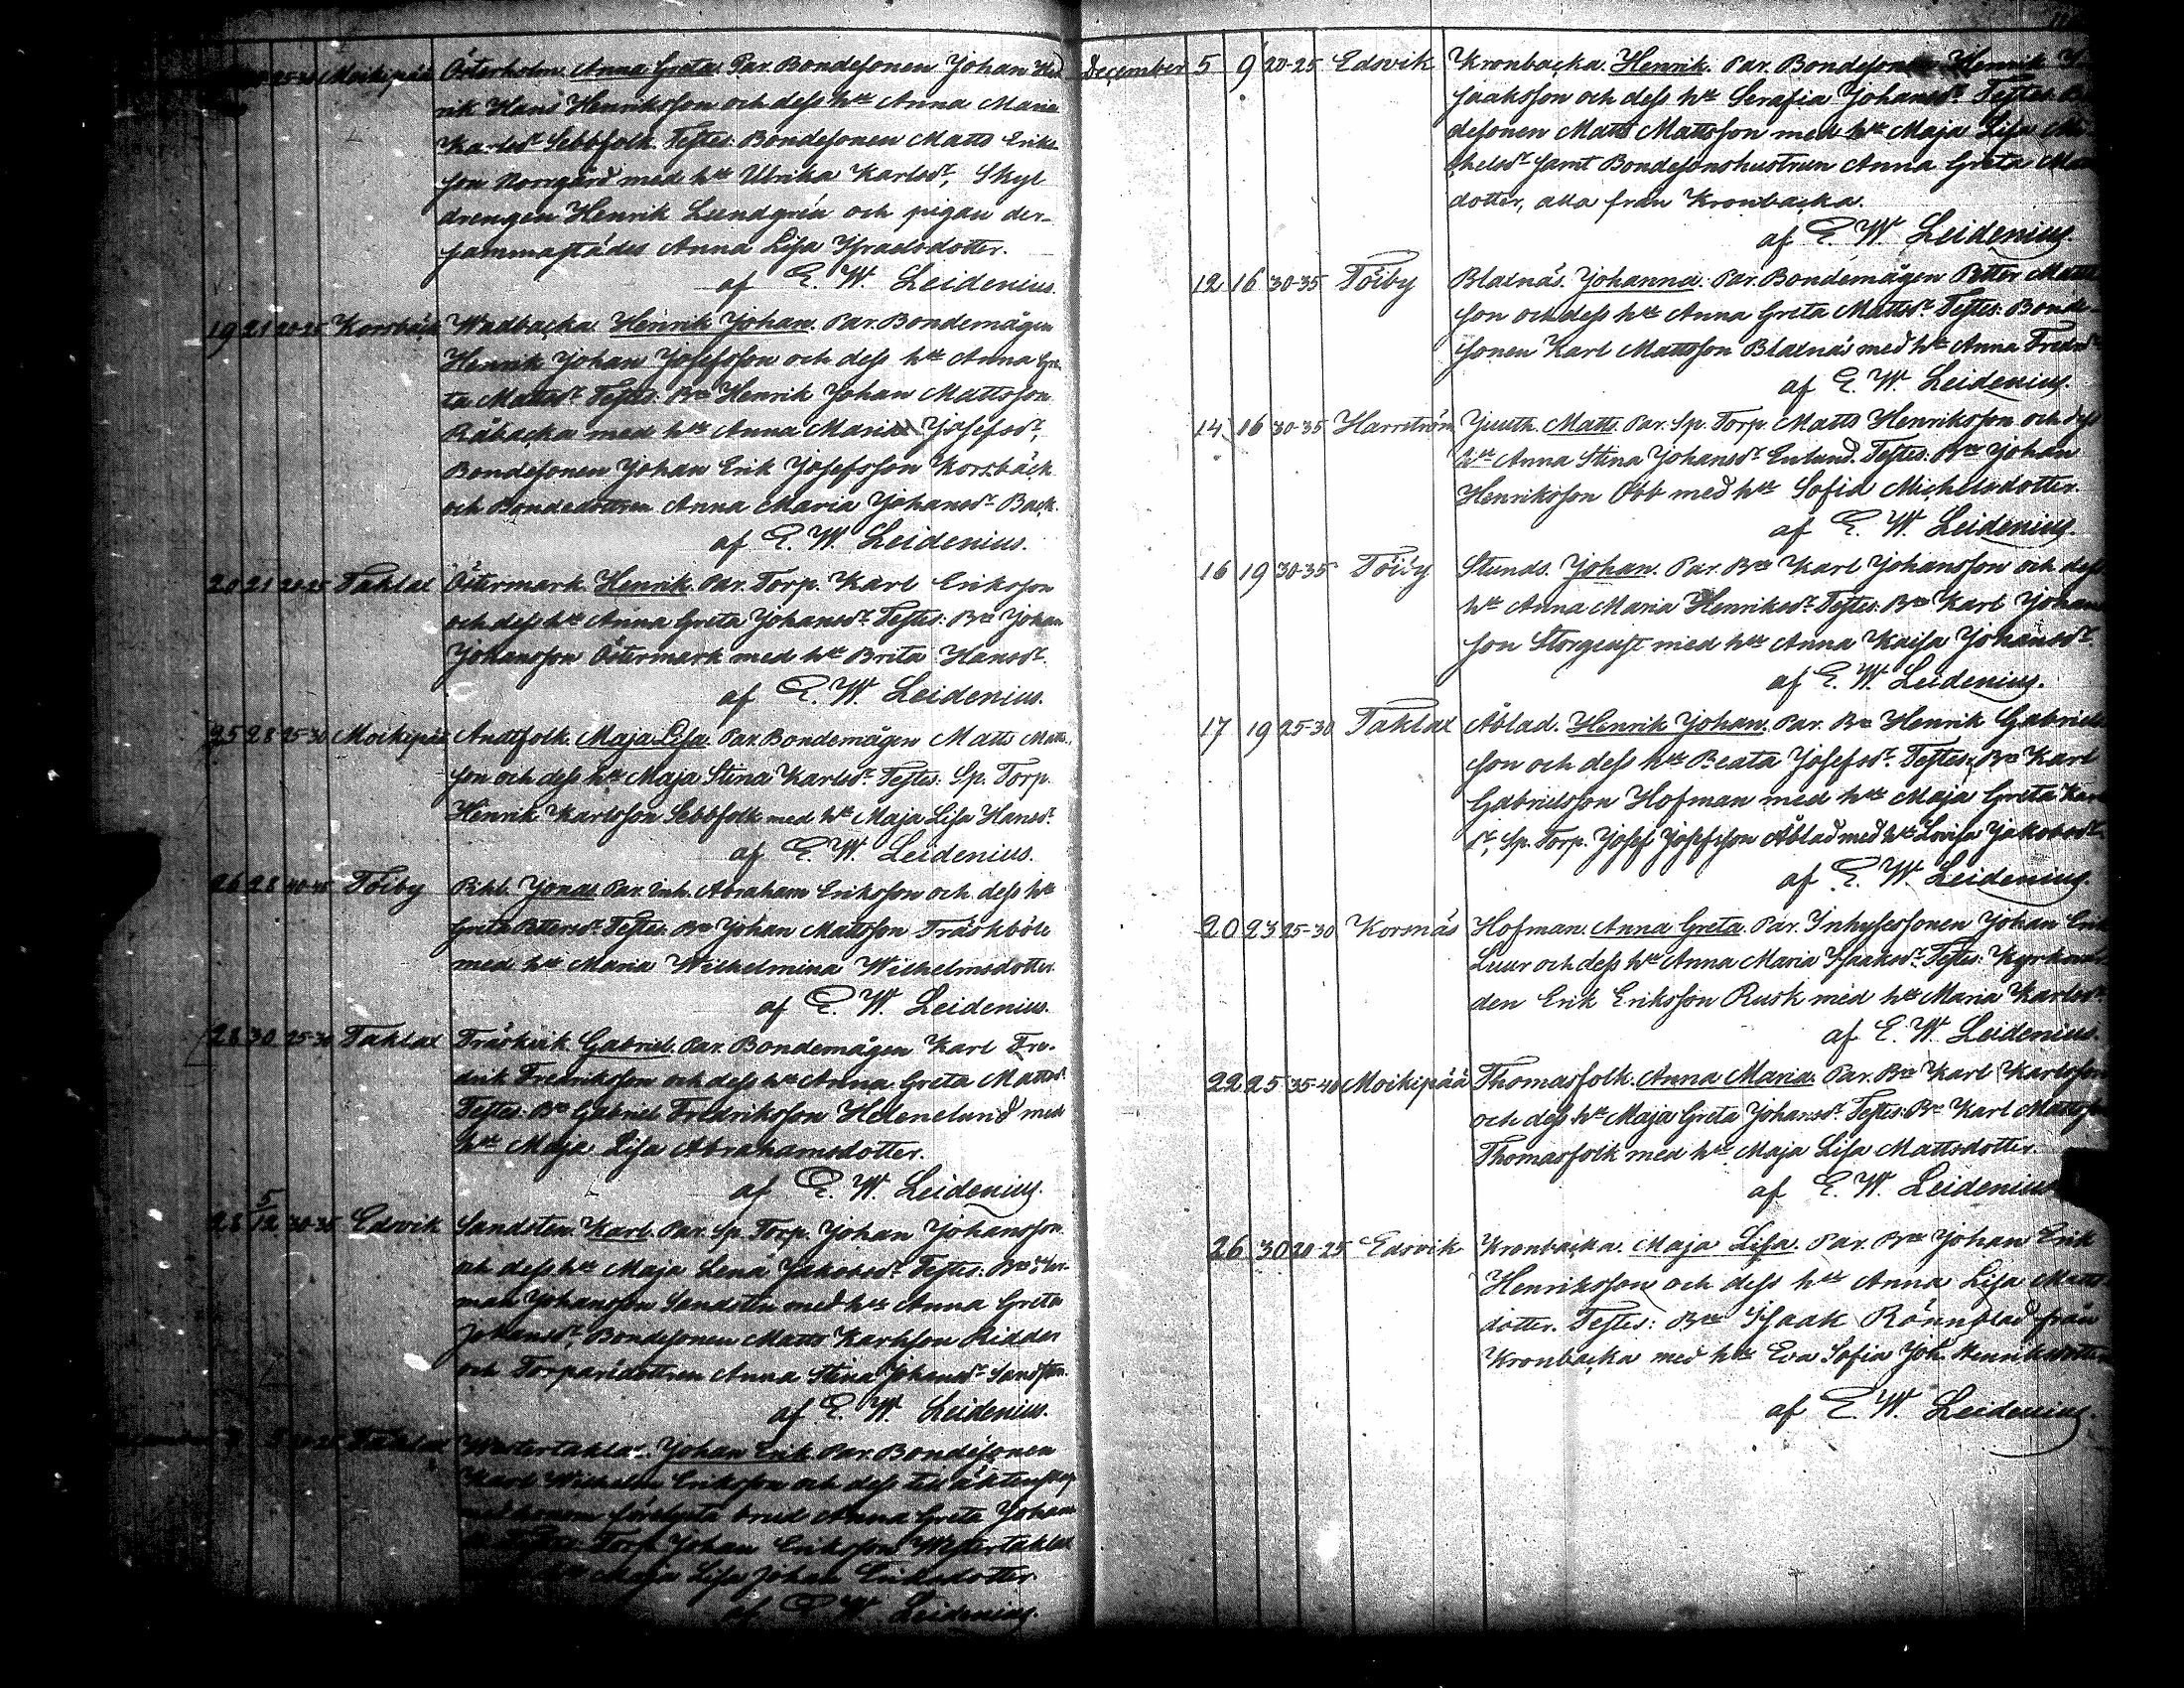 25-30 Moikipää Österholm. Anna Greta. Par. Bondesonen Johan Hen
rik Hans Henriksson och dess hu Anna Maria
Karlsdr Sebbfolk. Testes: Bondesonen Matts Eriks
son Norrgård med hu Ulrika Karlsdr,
drengen Henrik Lundgrén och pigan der-
sammastädes Anna Lisa Israelsdotter.
af E. W. Leidenius.
19 21 20-25 Korsbäck Wadbacka. Henrik Johan. Par. Bondemågen
Henrik Johan Josefsson och dess hu Anna Gre
ta Mattsdr Testes: Bn Henrik Johan Mattsson
Råbacka med hu Anna Maria Josefsdr,
Bondesonen Johan Erik Josefsson Korsbäck
och Bondedottren Anna Maria Johansdr Back.
af E. W. Leidenius.
20 21 20-25 Taklax Östermark. Henrik. Par. Torp. Karl Eriksson
och dess hu Anna Greta Johansdr Testes: Bn Johan
Johansson Östermark med hu Brita Hansdr
af E. W. Leidenius.
25 28 25-30 Moikipää Anttfolk. Maja Lisa. Par. Bondemågen Matts Matts
son och dess hu Maja Stina Karlsdr Testes: Sp. Torp.
Henrik Karlsson Sebbfolk med hu Maja Lisa Hansdr
af E. W. Leidenius.
26 28 40-45 Töiby Pihl. Jonas. Par. Inh. Abraham Eriksson och dess hu
Greta Pettersdr Testes: Bn Johan Mattsson Träskböle
med hu Maria Wilhelmina Wilhelmsdotter
af E. W. Leidenius.
28 30 25-30 Taklax Träskvik. Gabriel. Par. Bondemågen Karl Fre-
drik Fredriksson och dess hu Anna Greta Mattsdr
Testes: Bn Gabriel Fredriksson Helenelund med
hu Maja Lisa Abrahamsdotter.
af E. W. Leidenius.
28 5/12 30-35 Edsvik Sandsten. Karl. Par. Sp. Torp. Johan Johansson
och dess hu Maja Lena Jakobsdr Testes: Bn Her-
man Johansson Sandsten med hu Anna Greta
Johansdr, Bondesonen Matts Karlsson Ridder
och Torparedottren Anna Stina Johansdr Sandsten.
af E. W. Leidenius.
Taklax Westertaklax. Johan Erik. Par. Bondesonen
Karl Wilhelm Eriksson och dess till äktenskap
med honom förelysta brud Anna Greta Johans
Testes: Torp. Johan Eriksson Westertaklax
Maja Lisa Johan Eriksdotter.
af E. W. Leidenius.
December 5 9 20-25 Edsvik Kronbacka. Henrik. Par. Bondesonen Henrik
Isaksson och dess hu Serafia Johansdr. Testes: Bon
desonen Matts Mattsson med hu Maja Lisa Mi
chelsdr samt Bondesonshustrun Anna Greta
dotter, alla från Kronbacka.
af E. W. Leidenius.
12 16 30-35 Töiby Blaxnäs. Johanna. Par. Bondemågen Petter Matts
son och dess hu Anna Greta Mattsdr Testes: Bonde-
sonen Karl Mattsson Blaxnäs med hu Anna Fredrsdr
af E. W. Leidenius.
14 16 30-35 Harrström Juuth. Matts. Par. Sp. Torp. Matts Henriksson och dess
hu Anna Stina Johansdr Enlund. Testes: Bn Johan
Henriksson Obb med hu Sofia Michelsdotter.
af E. W. Leidenius.
16 19 30-35 Töiby Stunds. Johan. Par. Bn Karl Johansson och dess
hu Anna Maria Henriksdr Testes: Bn Karl Johans
son Storgeust med hu Anna Kaisa Johansdr.
af E. W. Leidenius.
17 19 25-30 Taklax Åblad. Henrik Johan. Par. Bn Henrik Gabriels
son och dess hu Beata Josefsdr. Testes: Bn Karl
Gabrielsson Hofman med hu Maja Greta Karls
dr, Sp. Torp. Josef Josefsson Åblad med hu Lovisa Jakobsdr
af E. W. Leidenius.
20 23 25-30 Korsnäs Hofman. Anna Greta. Par. Inhysessonen Johan Erik
Luur och dess hu Anna Maria Isaksdr. Testes:
den Erik Eriksson Rusk med hu Maria Karlsdr
af E. W. Leidenius.
22 25 35-40 Moikipää Thomasfolk. Anna Maria. Par. Bn Karl Karlsson
och dess hu Maja Greta Johansdr. Testes: Bn Karl Mattsson
Thomasfolk med hu Maja Lisa Mattsdotter.
af E. W. Leidenius
26 30 20-25 Edsvik Kronbacka. Maja Lisa. Par. Bn Johan Erik
Henriksson och dess hu Anna Lisa Matts
dotter. Testes: Bn Isaak Rönnblad från
Kronbacka med hu Eva Sofia Joh. Henriksdotter
af E. W. Leidenius.